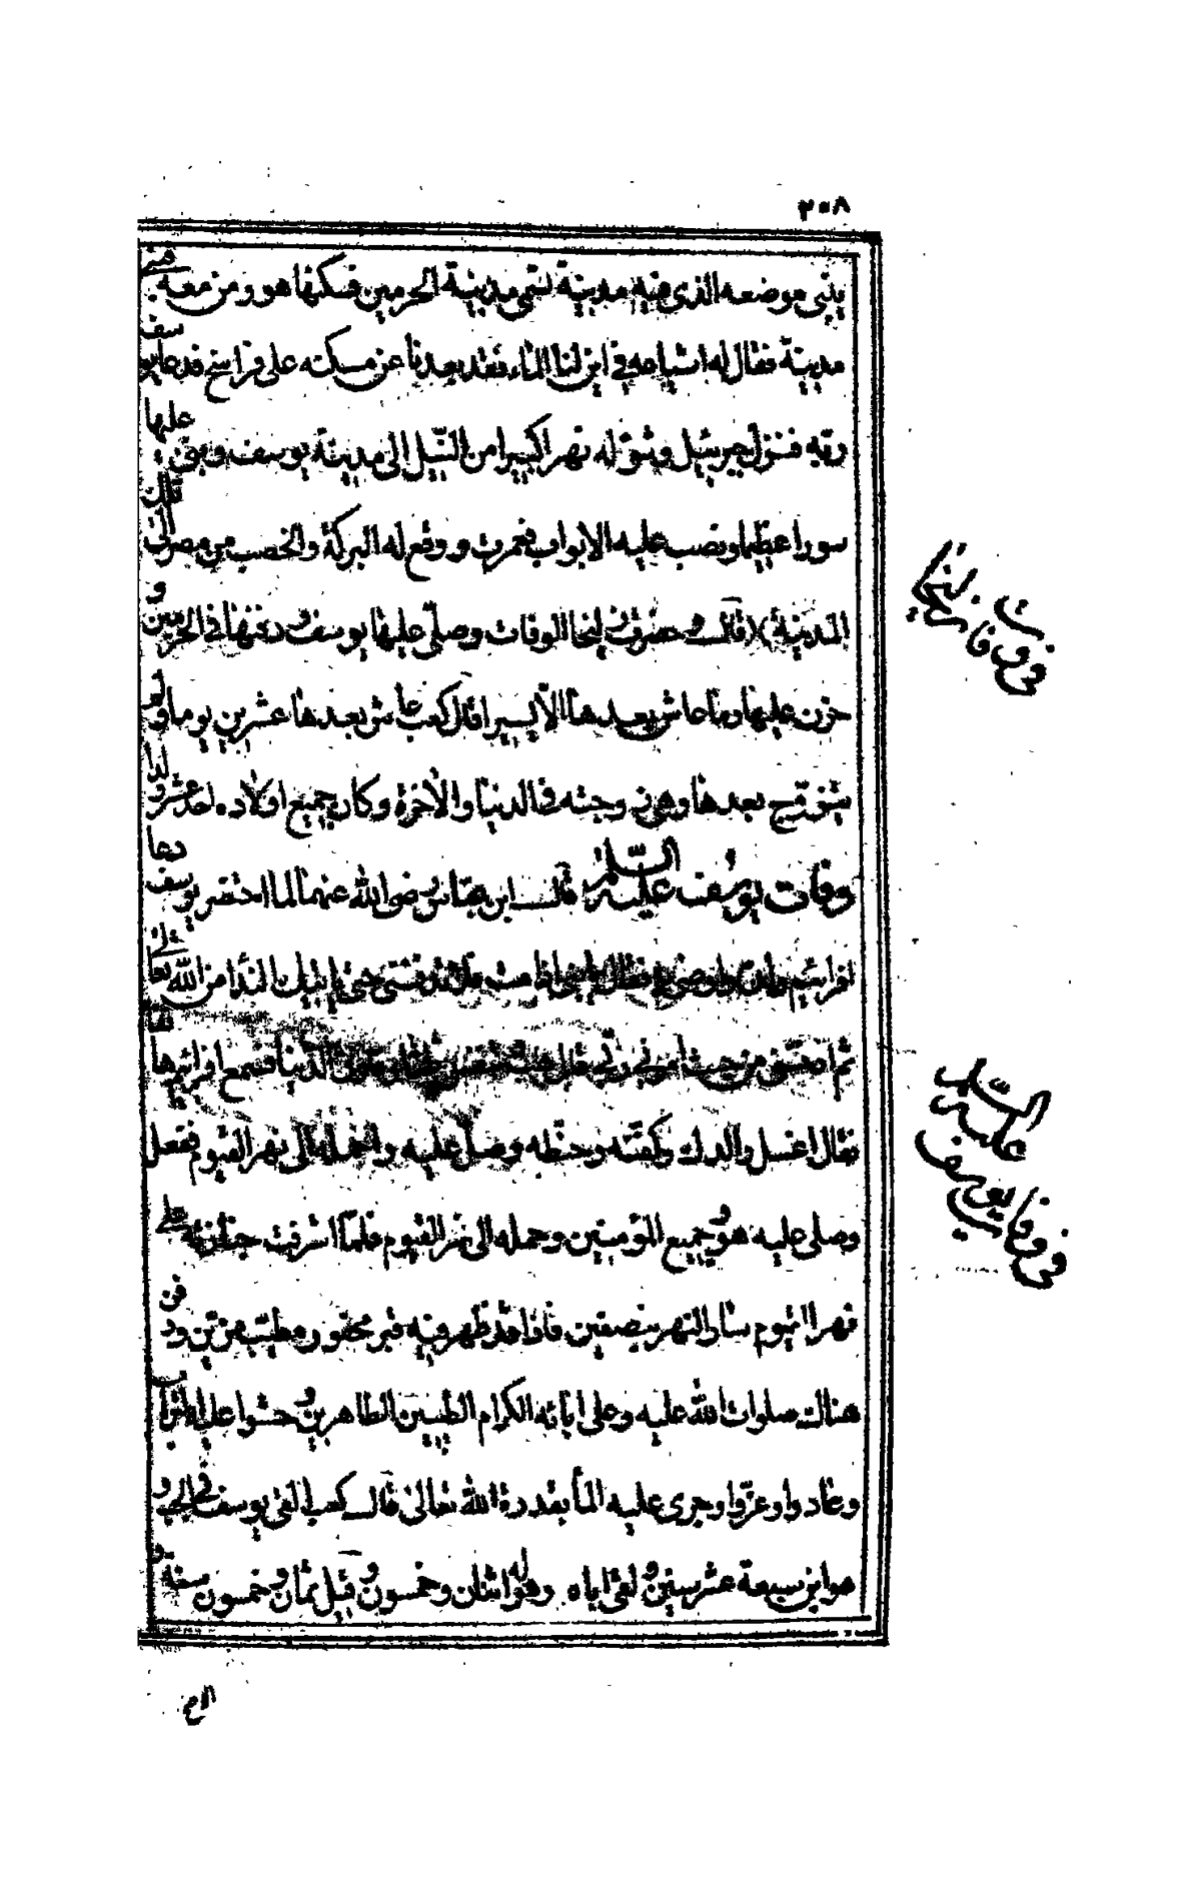 ٢٠٨
يبنى موضعه الذى هيه مدينة تسمى مدينة الحرمين فسكنها هو ومن معه
مدينة فقال له اشياعه فى اين لنا الماء فقد بعدنا عن مسكنه على فراسخ فدعا يوسف
ربه فنزل جبرئيل وشق له نهرا كبيرا من النيل الى مدينة يوسف وبنى عليها
سورا عظيما ونصب عليه الابواب فعمرت ووقع له البركة والخصب من مصر الى تلك
المدينة قال وحضرت زليخا الوفات وصلى عليها يوسف ودفنها فى الحرمين و
حزن عليها وما عاش بعدها الا يسيرا قال كعب عاش بعدها عشرين يوما ولم
يتزوج بعدها وهى زوجته فى الدنيا والاخرة وكان جميع اولاده احد عشر ولدا
وفات يوسف عليه السلم قال ابن عباس رضى الله عنهما لما احتضر يوسف دعا
افرائيم واوصى فقال يا بنى اذا مت فلا تدفننى حتى ياتيك الندا من الله تعالى
ثم ادفننى من حيث امرنى ربى قال الدنيا فسمع افرائيم هاتفا
فقال اغسل والدك وكفنه وحنطه وصل عليه واحمله الى نهر الفيوم ففعل
وصلى عليه هو وجميع المؤمنين وحمله الى نهر الفيوم فلما اشرفت جنازته على
نهر الفيوم شال النهر بنصفين فاذا قد ظهر فيه قبر محفور مطيب من تين ودفن
هناك صلوات الله عليه وعلى ابائه الكرام الطيبين الطاهرين وحشوا عليه التراب
وعادوا وعزوا وجرى عليه الماء بقدرة الله تعالى قال كعب القى يوسف فى الجب و
هو ابن سبعة عشر سنين ولقى اباه وهو له اثنان وخمسون وقيل ثمان وخمسون سنة و
الاخ
فى وفات زليخا
فى وفات يوسف عليه السلم